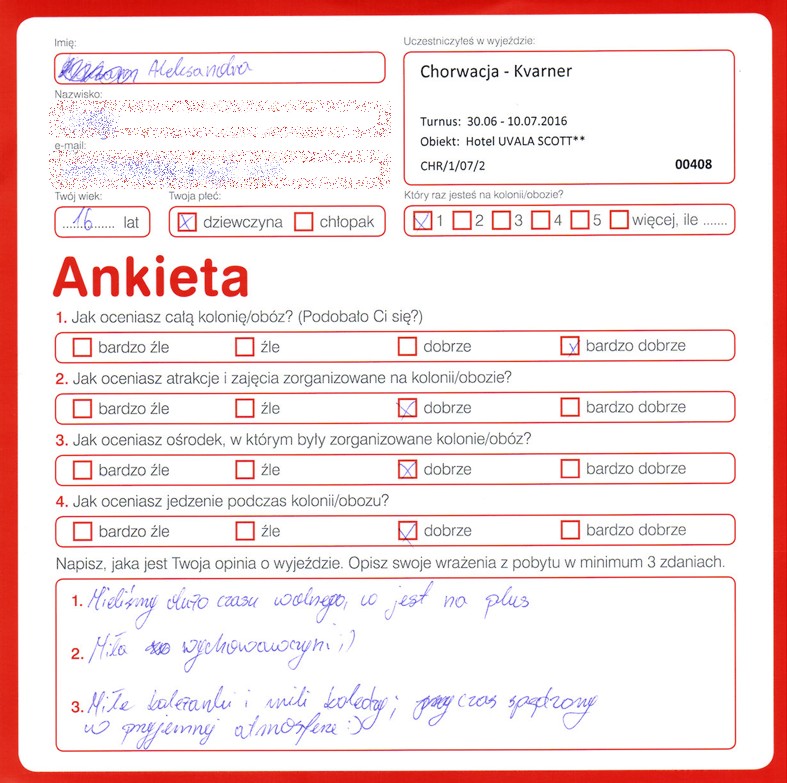 Imię:
Aleksandra
Uczestniczyłeś w wyjeździe:
Chorwacja - Kvarner
Turnus: 30.06 - 10.07.2016
Obiekt: Hotel UVALA SCOTT**
CHR/1/07/2 00408
Nazwisko:
e-mail:
Twój wiek:
16 lat
Twoja płeć:
dziewczyna chłopak
Który raz jesteś na kolonii/obozie?
1 2 3 4 5 więcej, ile .......
Ankieta
1. Jak oceniasz całą kolonię/obóz? (Podobało Ci się?)
bardzo źle źle dobrze bardzo dobrze
2. Jak oceniasz atrakcje i zajęcia zorganizowane na kolonii/obozie?
bardzo źle źle dobrze bardzo dobrze
3. Jak oceniasz ośrodek, w którym były zorganizowane kolonie/obóz?
bardzo źle źle dobrze bardzo dobrze
4. Jak oceniasz jedzenie podczas kolonii/obozu?
bardzo źle źle dobrze bardzo dobrze
Napisz, jaka jest Twoja opinia o wyjeździe. Opisz swoje wrażenia z pobytu w minimum 3 zdaniach.
1. Mieliśmy dużo czasu wolnego, co jest na plus
2. Miła wychowawczyni ;)
3. Miłe koleżanki i mili koledzy; czas spędzony
w przyjemnej atmosferze :)